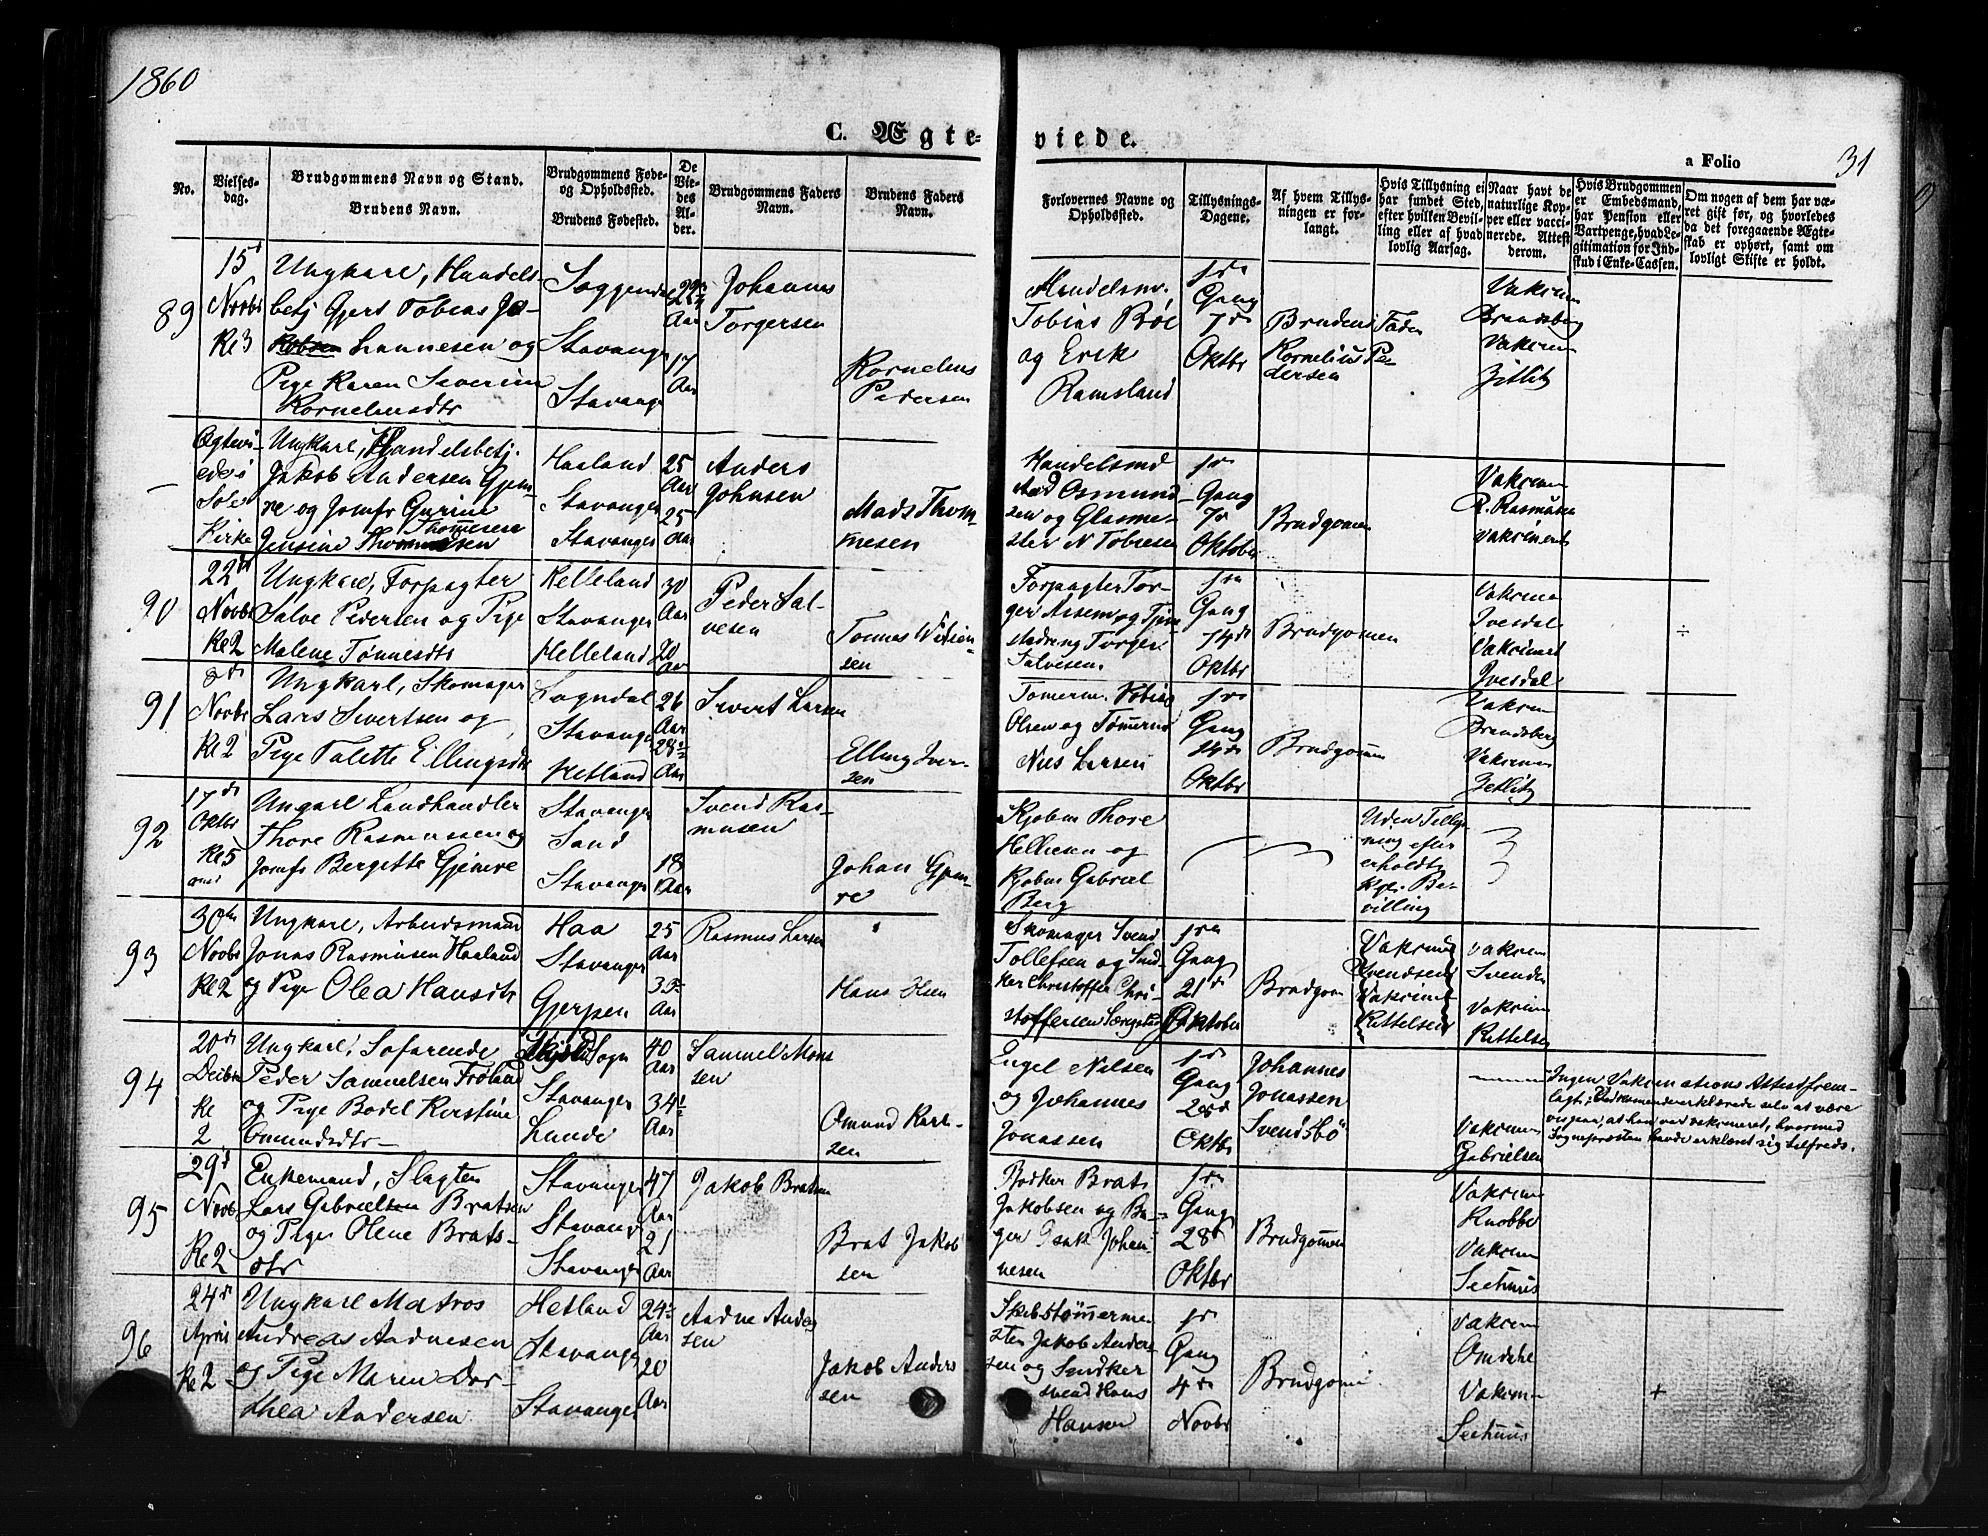 1860
C. Ægte-
viede.
a Folio
31
No.
Vielses-
dag.
Brudgommens Navn og Stand.
Brudens Navn.
Brudgommens Føde-
og Opholdssted.
Brudens Fødested.
De
Vie-
des
Al-
der.
Brudgommens Faders
Navn.
Brudens Faders
Navn.
Forlovernes Navne og
Opholdssted.
Tillysnings-
Dagene.
Af hvem Tillys-
ningen er for-
langt.
Hvis Tillysning ei
har fundet Sted,
efter hvilken Bevil-
ling eller af hvad
lovlig Aarsag.
Naar havt de
naturlige Kop-
per eller vacci-
nerede. Attest
derom.
Hvis Brudgommen
er Embedsmand,
har Pension eller
Vartpenge, hvad Le-
gitimation for Ind-
skud i Enke-Cassen.
Om nogen af dem har væ-
ret gift før, og hvorledes
da det foregaaende Ægte-
skab er ophørt, samt om
lovligt Skifte er holdt.
89
15d
Novbr
Kl 3
Ungkarl, Handels-
betj Gjert Tobias Jo-
hannesen og
Pige Karen Severine
Korneliusdtr
Soggendal
Stavanger
Stavanger
22
Aar
17
Aar
Johannes
Torgersen
Kornelius
Pedersen
Handelsm.
Tobias Bøe
og Erik
Ramsland
1ste
Gang
7de
Oktbr
Brudens Fader
Kornelius Pe-
dersen
Vakcin
Brandsberg
Vakcin
Zetlitz
Ægtevi-
ede i
Sole
Kirke
Ungkarl, Handelsbetj.
Jakob Andersen Gjem-
re og Jomfr Gurine
Jensine Thommesen
Haaland
Stavanger
Stavanger
25
Aar
25
Aar
Anders
Johnsen
Mads Thom-
mesen
Handelsmd
Aad Osmund-
sen og Glasme-
ster N Tobiesen
1ste
Gang
7de
Oktober
Brudgomen
Vakcin
R. Rasmusen
vakcineret
90
22de
Novbr
Kl 2
Ungkarl, Forpagter
Salve Pedersen og Pige
Malene Tønnesdtr
Helleland
Stavanger
Helleland
30
Aar
20
Aar
Peder Sal-
vesen
Tønnes
sen
Forpagter Tor-
ger Assem og Tjene-
stedreng Torger
Salvesen.
1ste
Gang
14de
Oktbr
Brudgomen
Vakcin
Ivesdal
Vakcineret
Ivesdal
÷
91
8de
Novbr
Kl 2
Ungkarl, Skomager
Lars Sivertsen og
Pige Talette Ellingsdtr
Sogndal
Stavanger
Hetland
26
Aar
28
Aar
Sivert Larsen
Elling Iver-
sen
Tømerm. Tobias
Olsen og Tømermd
Nils Larsen
1ste
Gang
14de
Oktbr
Brudgomen
Vakcin
Brandsberg
Vakcin
Zetlitz
92
17de
Oktbr
Kl 5
Ungkarl Landhandler
Thore Rasmussen og
Jomfr Bergitte Gjemre
Stavanger
Sand
Stavanger
18
Aar
Svend Ras-
musen
Johan Gjem-
re
Kjøbm Thore
Helliesen og
Kjøbm Gabriel
Berg
Uden Tillys-
ning efter
erholdt
Kgl. Be-
villing
93
30te
Novbr
Kl 2
Ungkarl, Arbeidsmand
Jonas Rasmusen Haaland
og Pige Olea Hansdtr
Haa
Stavanger
Gjerpen
25
Aar
35
Aar
Rasmus Larsen
Hans Olsen
Skomager Svend
Tollefsen og Sned-
ker Christoffer Chri-
stoffersen
1ste
Gang
21de
Oktober
Brudgom
Vakcine
Svendsen
Vakcine
Kittelsen
vakcin
Svendsen
Vakcin
Kittelsen
94
20de
Decbr
Kl
2
Ungkarl, Søfarende
Peder Samuelsen Frøland
og Pige Bodel Kirstine
Omundsdtr
Skjold Sogn
Stavanger
Lunde
40
Aar
34
Aar
Samuel Mon-
sen
Omund Karl-
sen
Engel Nilsen
og Johannes
Jonassen
1ste
Gang
28de
Oktbr
Johannes
Jonassen
Svendsbø
Vakcin
Gabrielsen
Ingen Vakcinations Attest frem-
lagt; Brudgommen erklærede selv at være
vis paa, at han var vakcineret, hvormed
Sognepræsten havde erklæret sig tilfreds.
95
29d
Novbr
Kl 2
Enkemand, Slagter
Lars Gabrielsen Bratsen
og Pige Olene Brats-
dtr
Stavanger
Stavanger
Stavanger
47
Aar
21
Aar
Jakob Bratsen
Brat Jakob
sen
Bødker Brat
Jakobsen og Ba-
ger Isak Johan
nesen
1ste
Gang
28de
Oktbr
Brudgomen
Vakcin
Knobbe
Vakcin
Seehuus
96
24de
April
Kl 2
Ungkarl Matros
Andreas Aadnesen
og Pige Maren Dor-
thea Andersen
Hetland
Stavanger
Stavanger
24
Aar
20
Aar
Aadne Ander
sen
Jakob Anders
sen
Skibstømmerme-
ster Jakob Ander-
sen og Snedker
Svend Hans
Hansen
1ste
Gang
4de
Novbr
Brudgom
Vakcin
Omdahl
Vakcin
Seehuus
+